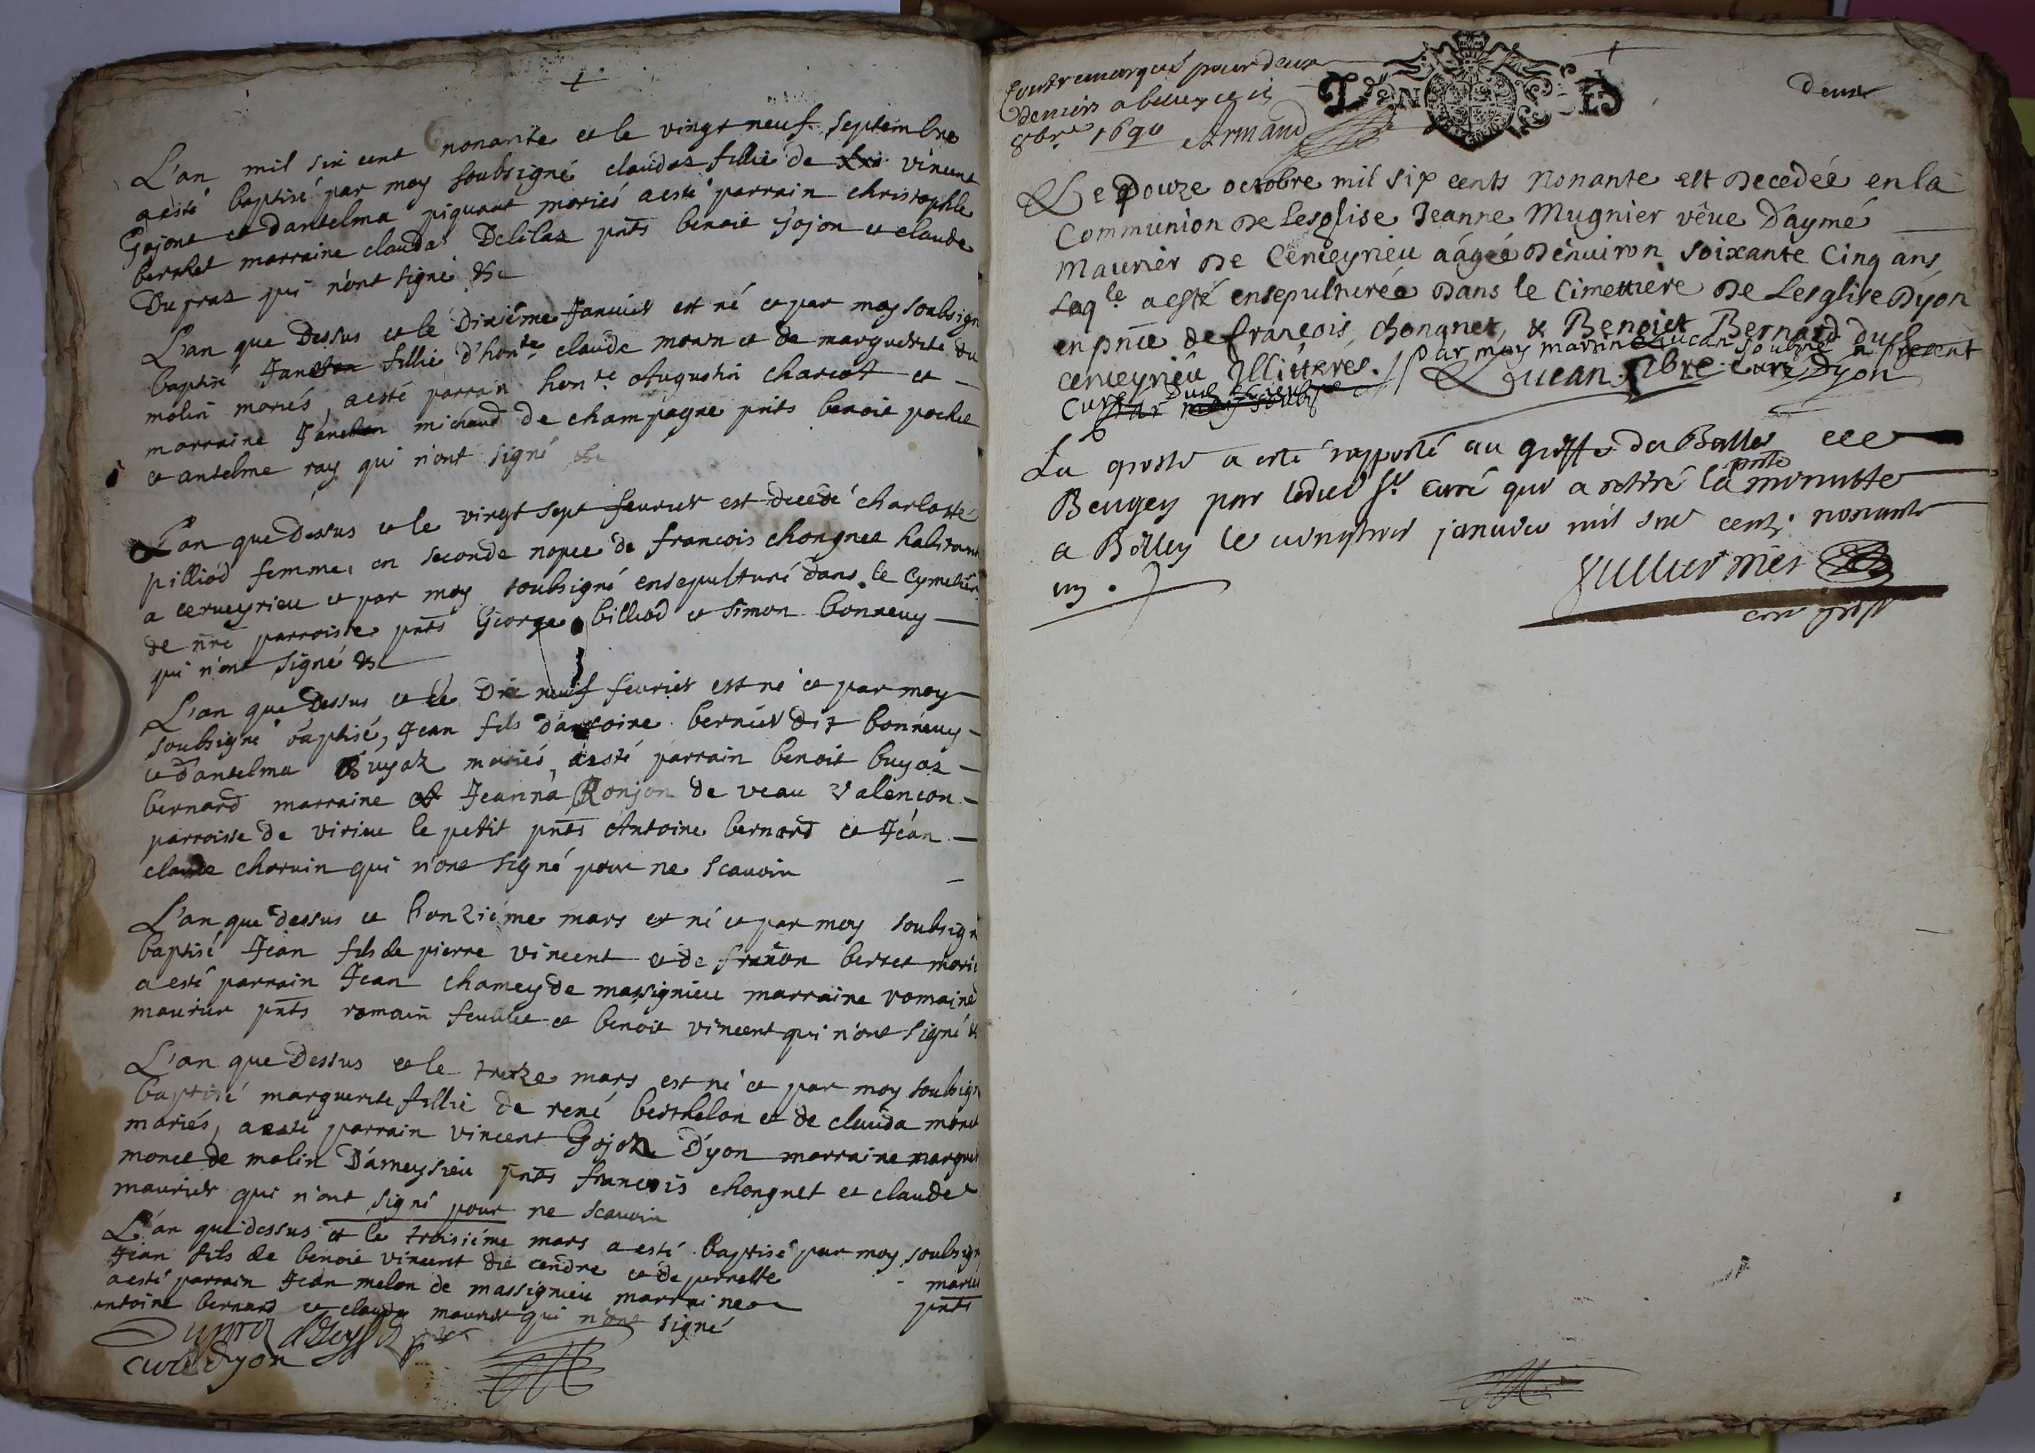 L'an mil six cent nonante et le vingt neuf septembre
a esté baptisé par moy soubsigné claudaz fillie de vincent
Gojont et d'antelma piquant mariés a esté parrain christophle
berthet marraine clauda Delilaz pnts benoit Gojon et claude
Dupraz qui n'ont signé &c
L'an que Dessus et le Dixiéme Januier est né et par moy soubsign
baptisé fillie d'honte claude monin et de marguerite du
molin mariés, a esté parrain honte Augustin chariot et
marraine michaud de champagne pnts benoit pochet
et antelme ray qui n'ont signé &c
L'an que Dessus et le vingt sept feurier est decedé charlotte
pilliod femme en seconde nopce de francois chongnet habitant
a cerueyrieu et par moy soubsigné ensepulturé dans le Cymetier
de nrê parroisse pnts George billiod et simon bonneuy
qui n'ont signé &c
L'an que Dessus et le Dix neuf feurier est né et par moy
soubsigné baptisé, Jean fils d'antoine bernier dit bonneuy
et d'antelma Buyaz mariés, a esté parrain benoit buyaz
bernard marraine Jeanna Ronjon de veau valencon
parroisse de virieu le petit pnts Antoine bernard et Jean
claude charuin qui n'ont signé pour ne scauoir
L'an que dessus et honziéme mars est né et par moy soubsign
baptisé Jean fils de pierre vincent et de franon berret marié
a esté parrain Jean chamey de massignieu marraine romaine
maurier pnts romain feuillet et benoit vincent qui n'ont signé &
L'an que Dessus et le treize mars est né et par moy soubsign
baptisé marguerite fillie de rené berthelon et de clauda monet
mariés, a esté parrain vincent Gojon D'yon marraine margueri
monet de molin D'ameysieu pnts francois chongnet et claude
maurier qui n'ont signé pour ne scauoir
L'an que dessus et le troisiéme mars a esté baptisé par moy soubsign
Jean fils de benoit vincent dit cendre et de pernette mariés
a esté parrain Jean melon de massignieu marraine pnts
antoine bernard et claude maurier qui n'ont signé
curé d'yon
Contremarqué pour deux
deniers a belley ce
8bre 1690 Armand
deux
Le Douze octobre mil six cents Nonante est Decedée en la
Communion De Lesglise Jeanne Mugnier vêue D'aymé
Maurier De Cerueyrieu aagée D'enuiron soixante Cinq ans
Laqle a esté ensepulturée Dans le Cimettiere De Lesglise D'yon
en pnce de françois chongnet, & Benoict Bernard dud
Cerueyrieu Illitterés. // Par moy martin Lucan soubné a present
Curé
Lucan Pbre Curé D'yon
La grosse a esté rapporté au greffe du Balliage
Beugey par ledict Sr curé qui a retiré la pnte minutte
a Belley le januier mil six cents nonante
un.